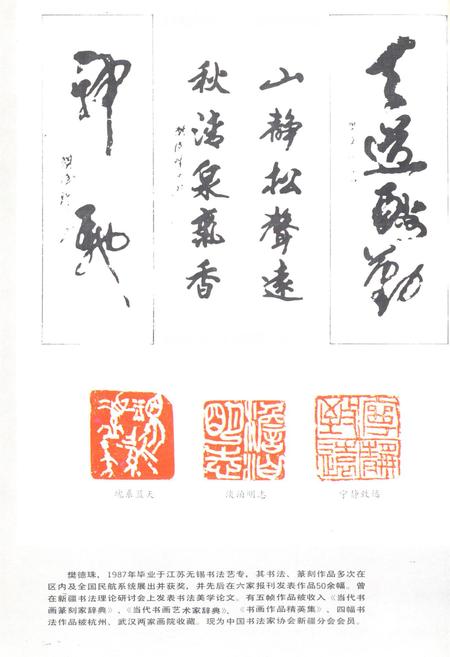 天道酬勤
山静松聲遠
秋清泉氣香
神馳
魂系蓝天
淡泊明志
宁静致远
樊德珠，1987年毕业于江苏无锡书法艺专，其书法、篆刻作品多次在
区内及全国民航系统展出并获奖，并先后在六家报刊发表作品50余幅。曾
在新疆书法理论研讨会上发表书法美学论文。有五帧作品被收入《当代书
画篆刻家辞典》、《当代书画艺术家辞典》、《书画作品精英集》，四幅书
法作品被杭州、武汉两家画院收藏。现为中国书法家协会新疆分会会员。